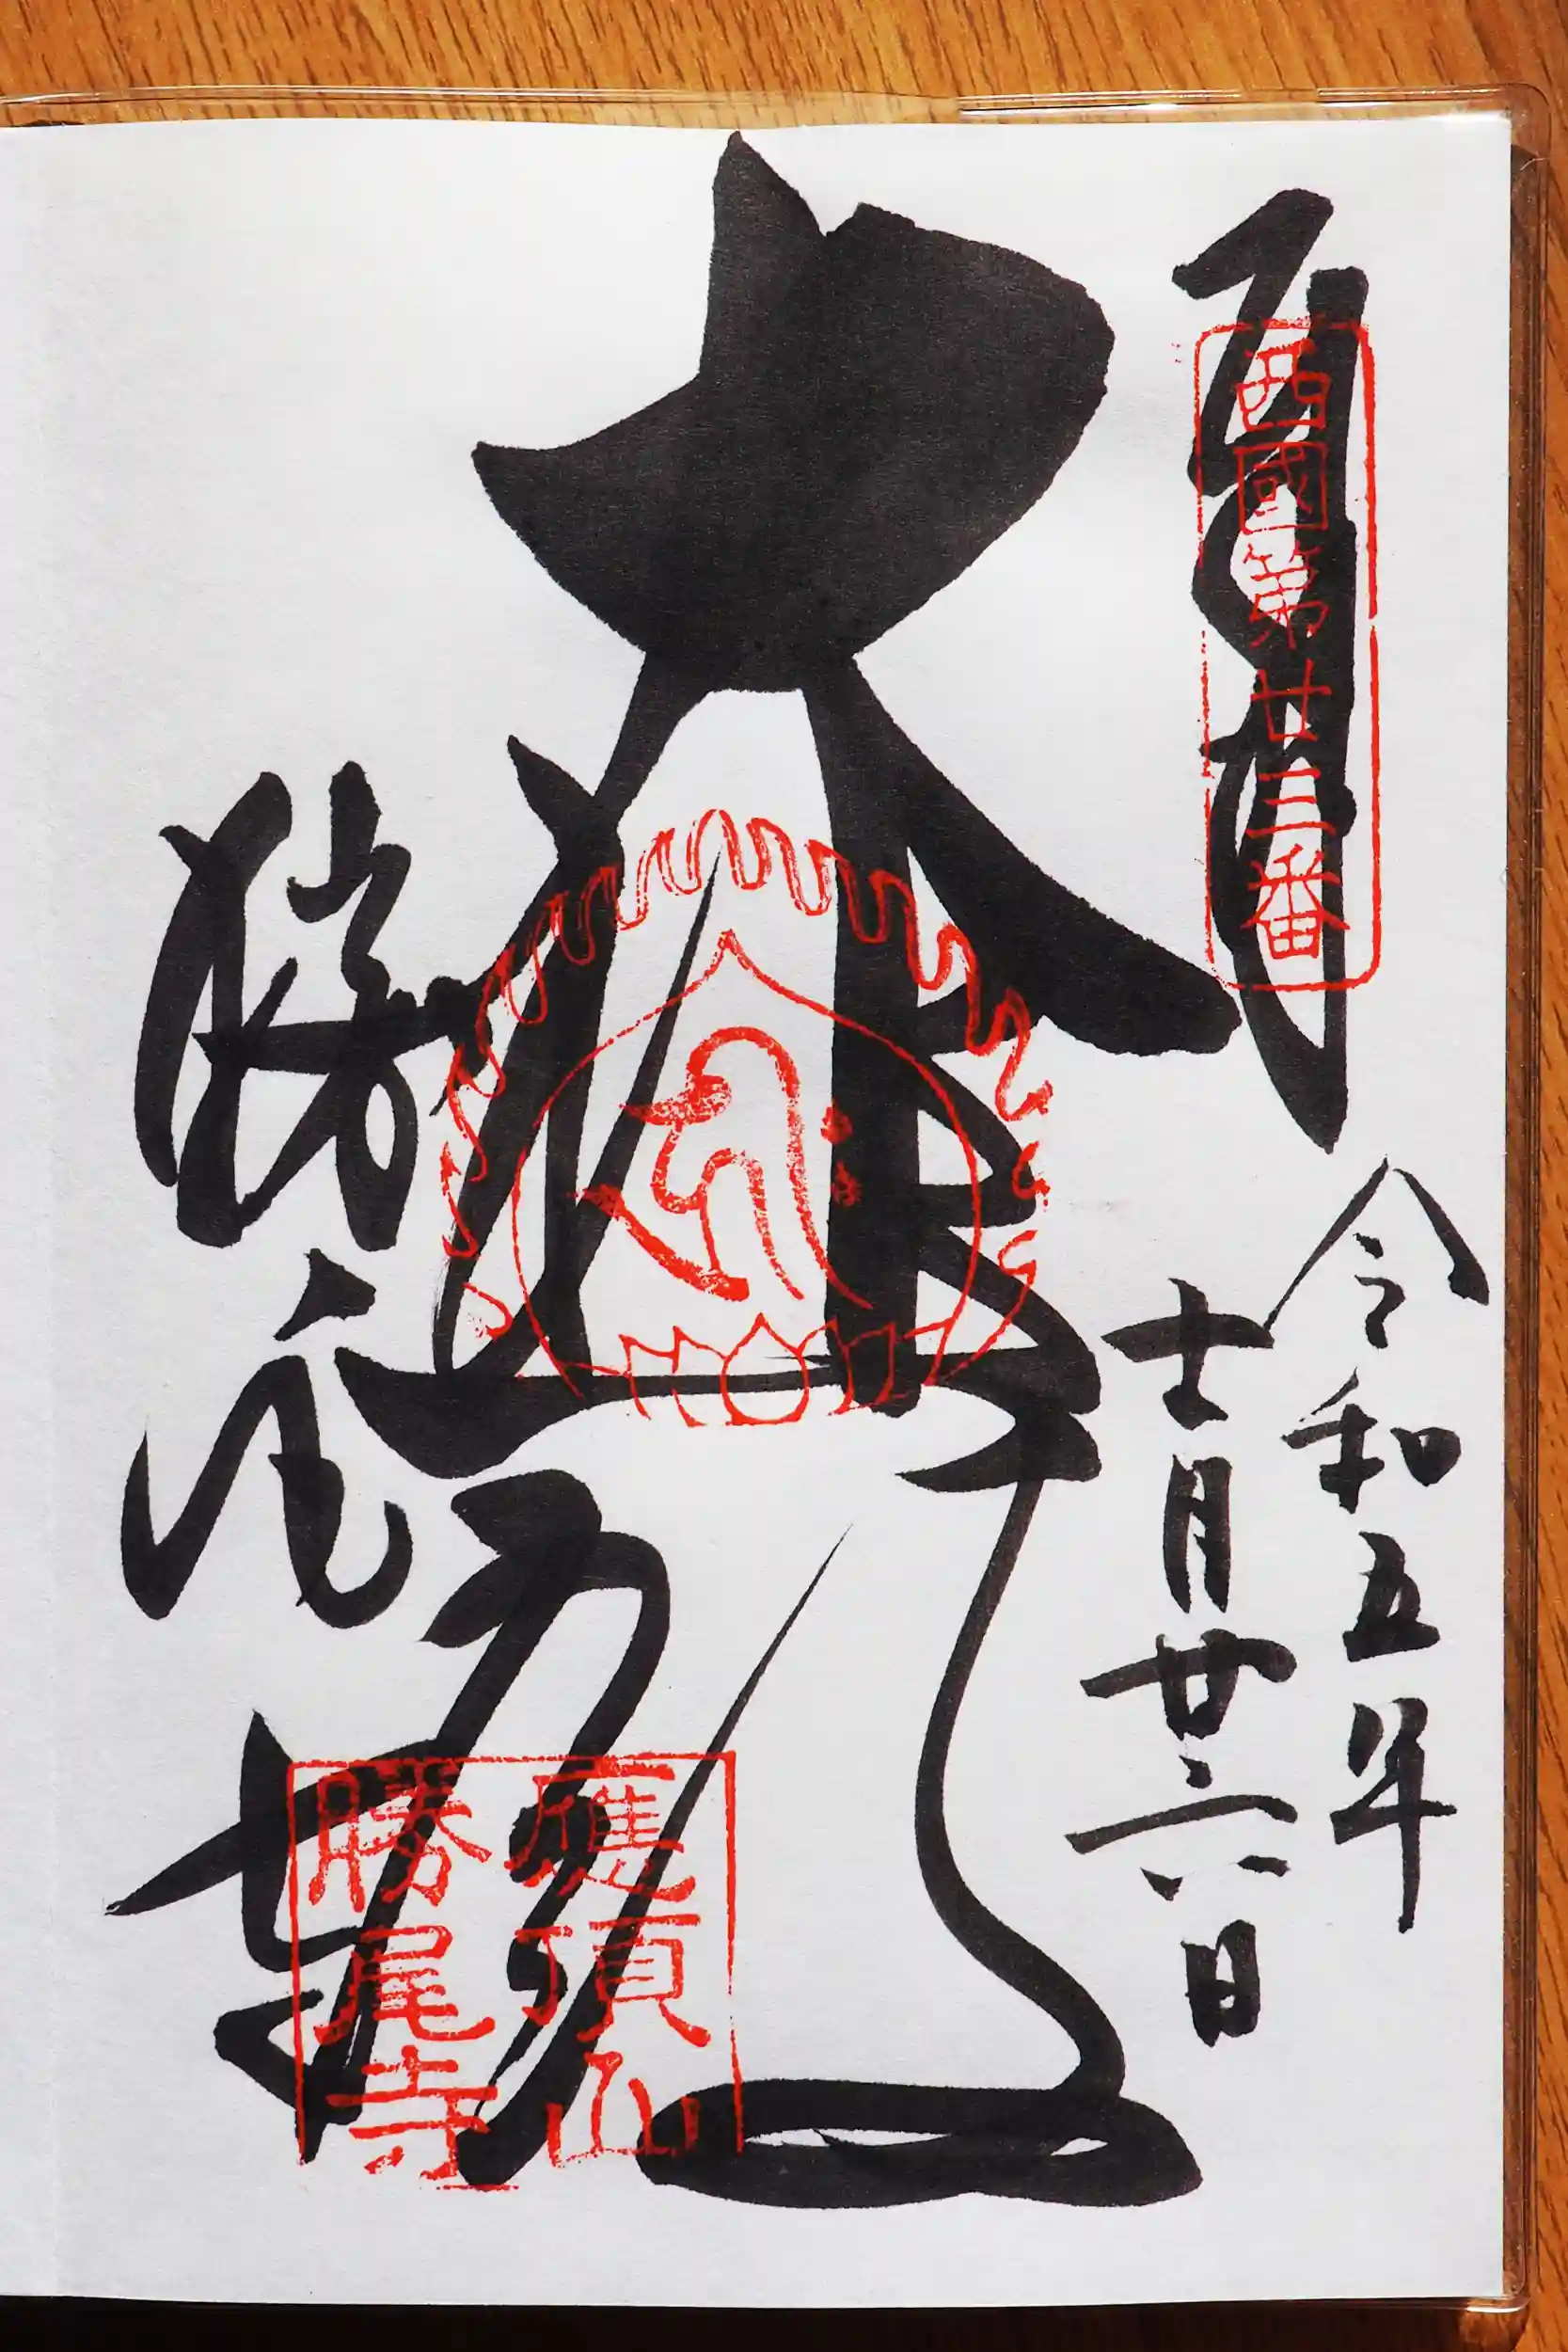 西國第廿三番
令和五年
十一月廿六日
大悲殿
勝尾寺
應頂山
勝尾寺